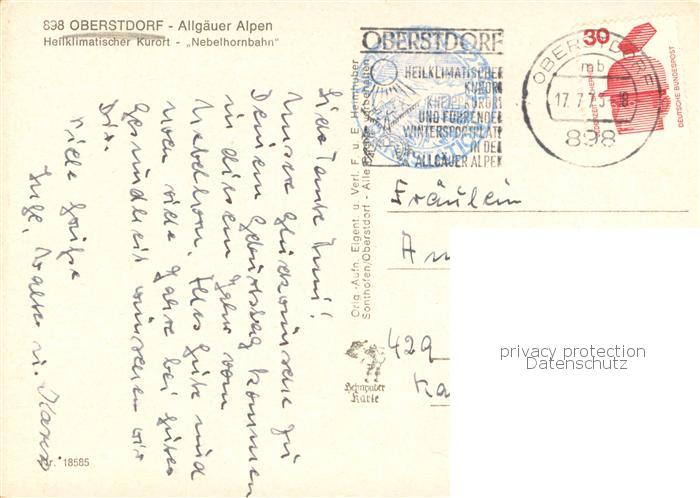 898 OBERSTDORF - Allgäuer Alpen
Heilklimatischer Kurort - „Nebelhornbahn"
OBERSTDORF
HEILKLIMATISCHER
KURORT
KNEIPPKURORT
UND FÜHRENDER
WINTERSPORTPLATZ
IN DEN
ALLGÄUER ALPEN
OBERSTDORF
mb
17.7.75-18
898
30
DEUTSCHE BUNDESPOST
Liebe Tante Anni!
Unsere Glückwünsche zu
Deinem Geburtstag kommen
in diesem Jahr vom
Nebelhorn. Alles Gute und
noch viele Jahre bei guter
Gesundheit wünschen wir
Dir.
Viele Grüße
Inge, Walter u. Karin
Orig.-Aufn. Eigent. u. Verl. F. u. E. Heimhuber
Sonthofen/Oberstdorf - Alle Rechte vorbehalten
Fräulein
An
429
Ka
Heimhuber
Karte
Nr. 18585
privacy protection
Datenschutz